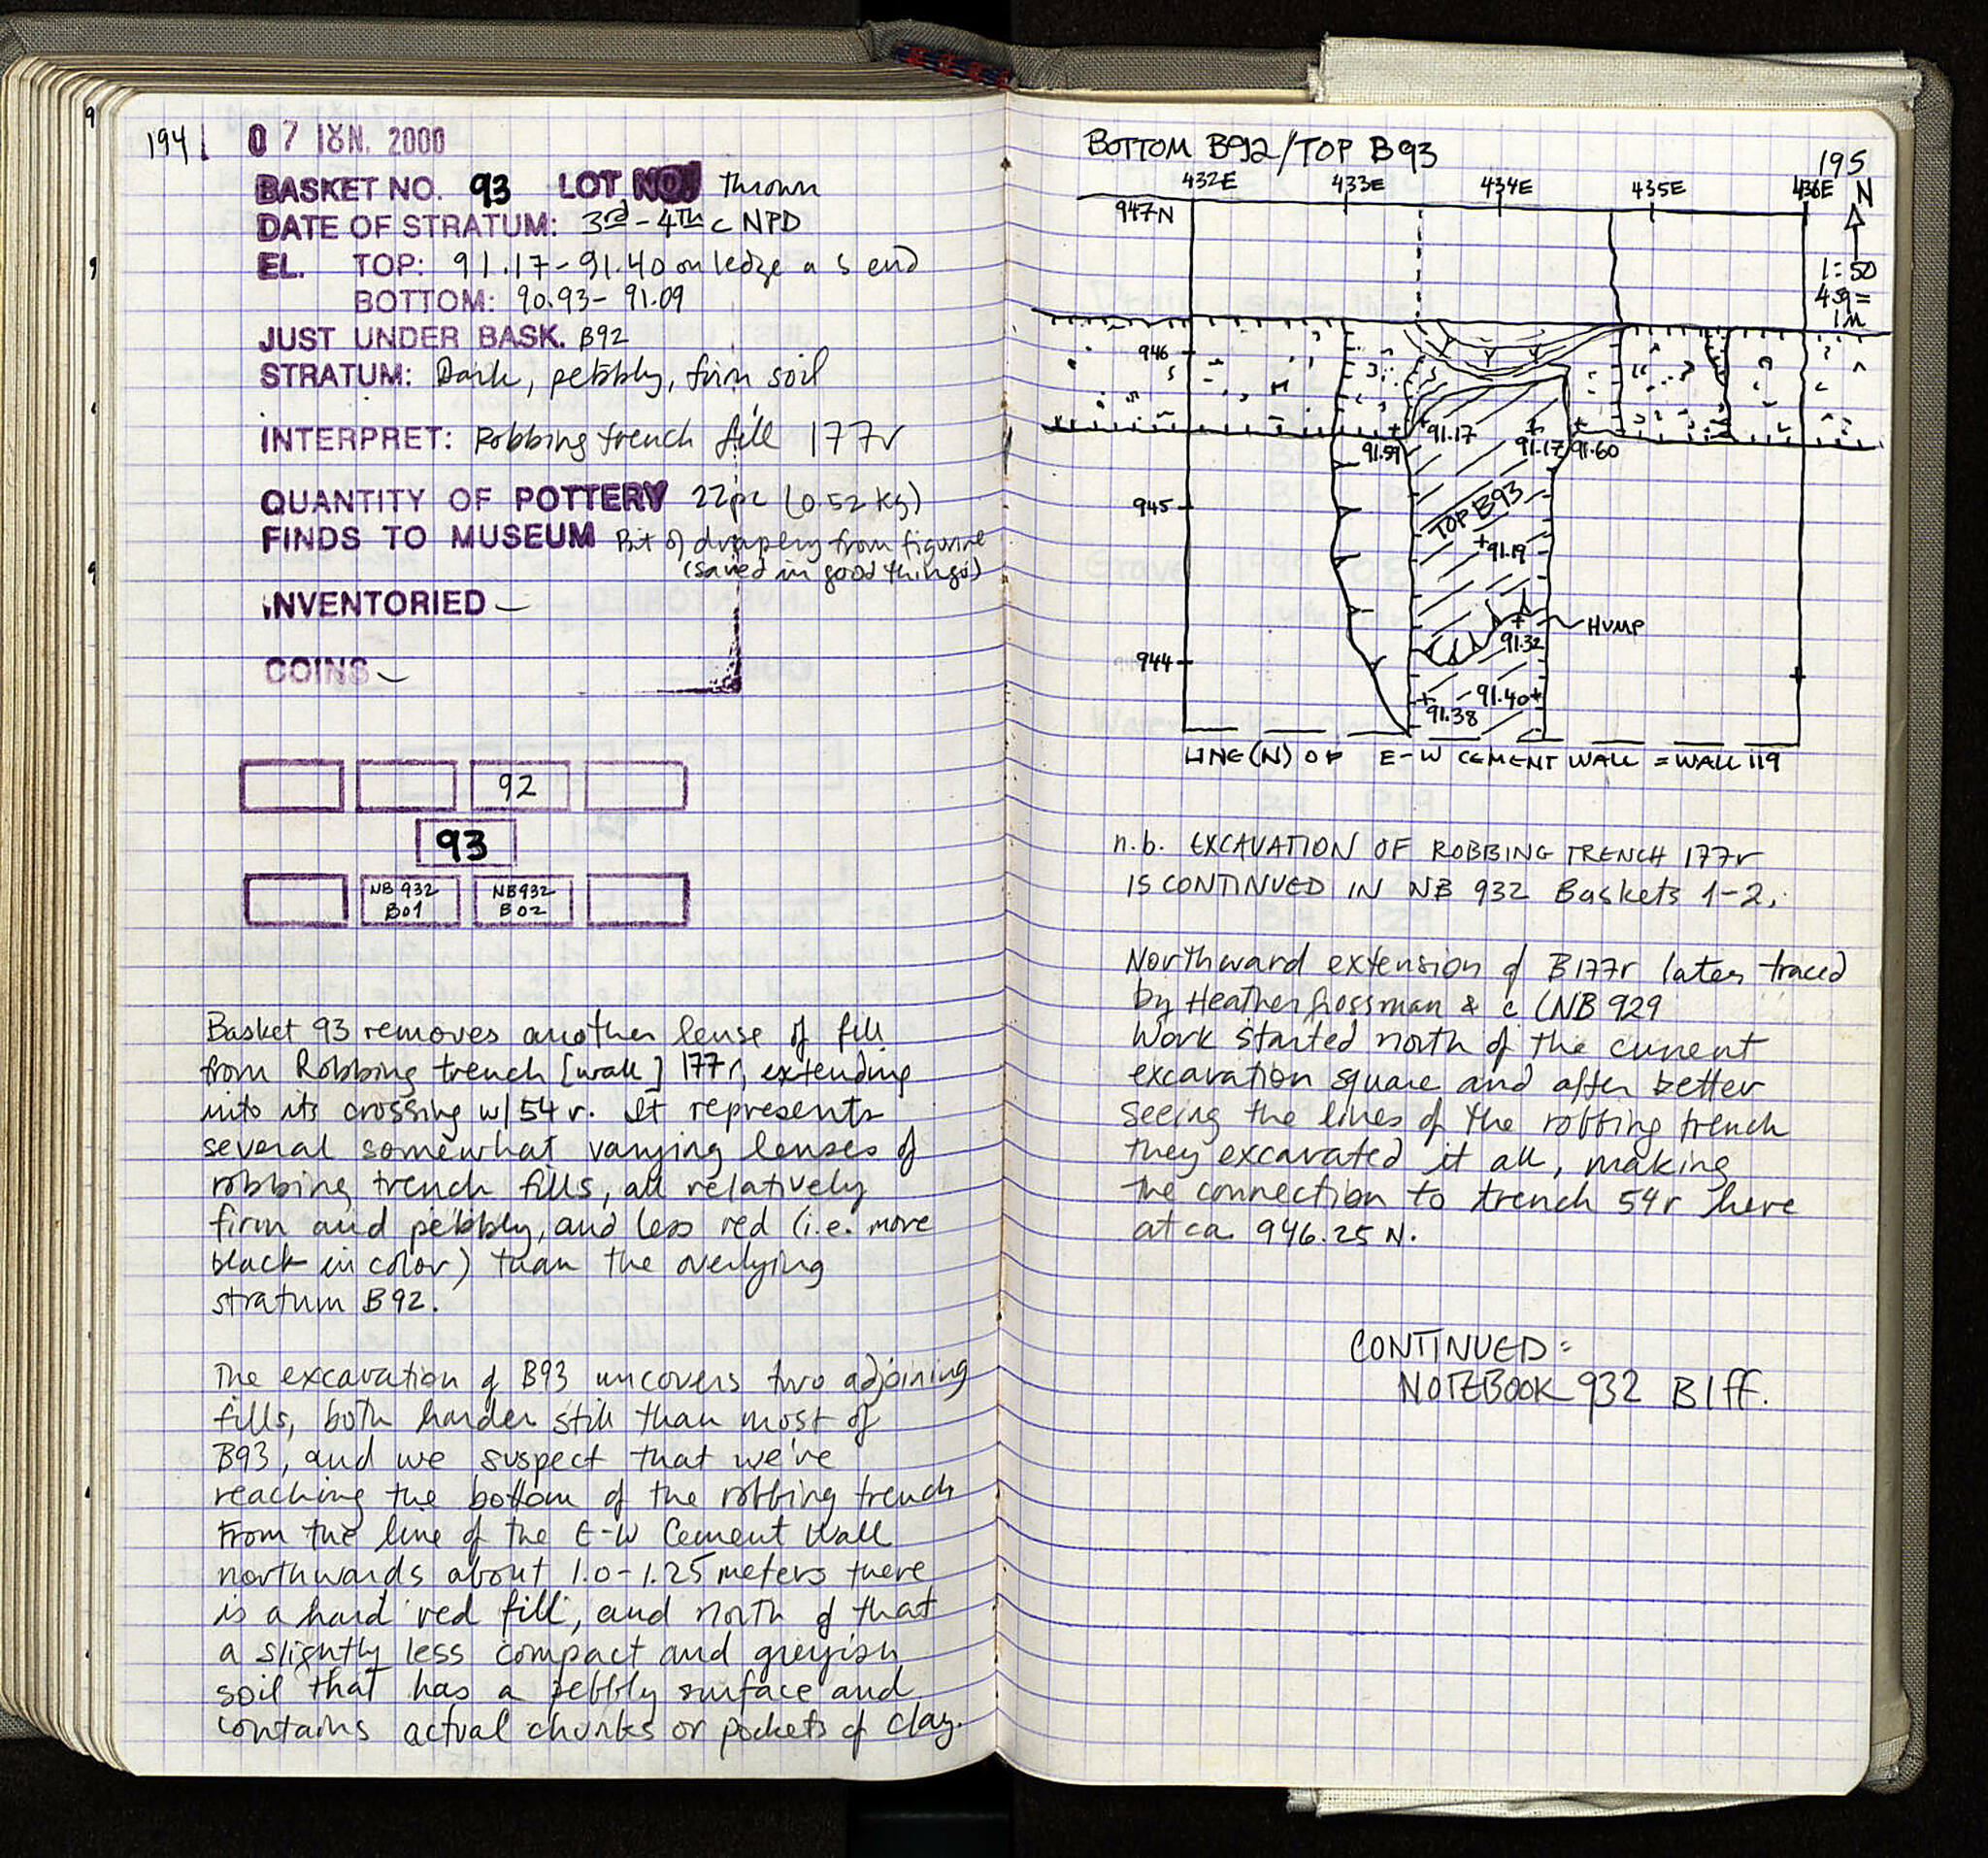 194
07 ΙΟΥΝ. 2000
BASKET NO. 93 LOT NO. Thrown
DATE OF STRATUM: 3rd-4th c NPD
EL. TOP: 91.17-91.40 on ledge a S end
BOTTOM: 90.93-91.09
JUST UNDER BASK. B92
STRATUM: Dark, pebbly, firm soil
INTERPRET: Robbing trench fill 177r
QUANTITY OF POTTERY 22pc (0.52 kg)
FINDS TO MUSEUM Bit of drapery from figurine
(saved in good things)
INVENTORIED –
COINS –
92
93
NB 932
B01
NB932
B02
Basket 93 removes another lense of fill
from Robbing trench [wall] 177r, extending
into its crossing w/ 54r. It represents
several somewhat varying lenses of
robbing trench fills, all relatively
firm and pebbly, and less red (i.e. more
black in color) than the overlying
stratum B92.
The excavation of B93 uncovers two adjoining
fills, both harder still than most of
B93, and we suspect that we've
reaching the bottom of the robbing trench
From the line of the E-W Cement Wall
northwards about 1.0-1.25 meters there
is a hard red fill, and north of that
a slightly less compact and greyish
soil that has a pebbly surface and
contains actual chunks or pockets of clay.
BOTTOM B92/TOP B93
195
432E 433E 434E 435E 436E N
947N
1:50
4sq=
1m
946
91.17
91.59 91.17 91.60
945
TOP B93
91.19
HUMP
91.32
944
91.40
91.38
LINE (N) OF E-W CEMENT WALL = WALL 119
n.b. EXCAVATION OF ROBBING TRENCH 177r
IS CONTINUED IN NB 932 Baskets 1-2.
Northward extension of B177r later traced
by Heather Grossman & c (NB 929
Work started north of the current
excavation square and after better
seeing the lines of the robbing trench
they excavated it all, making
the connection to trench 54r here
at ca. 946.25 N.
CONTINUED:
NOTEBOOK 932 B1ff.